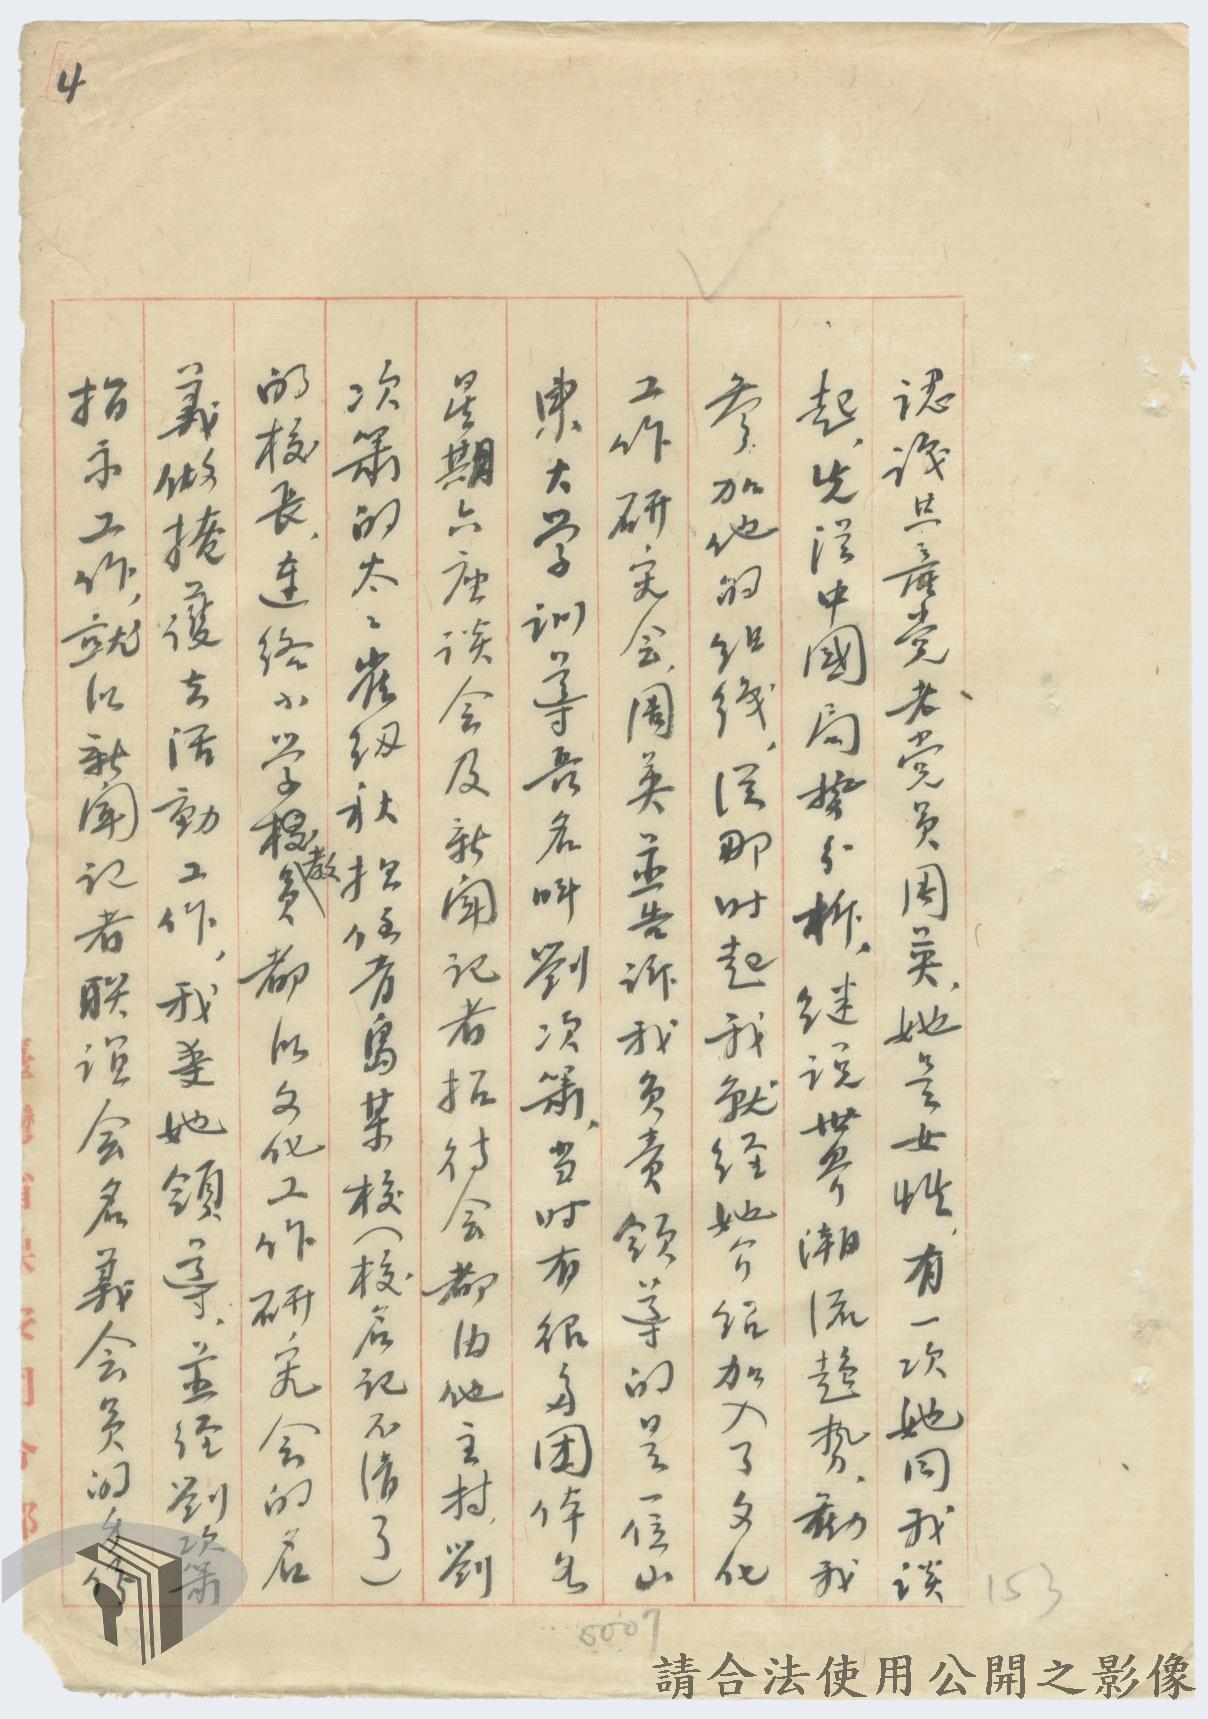 4
認識共產党老党员周英,她是女性,有一次她同我談
起,先從中國局势分析,继说世界潮流趋势,勸我
参加他的组织,從那时起我就经她介绍加入了文化
工作研究会,周英並告訴我负责領導的是一位山
東大学訓導長名叫劉次箫,当时有很多团体如
星期六座谈会及新聞記者招待会都由他主持,劉
次箫的太々崔纫秋担任青島某校(校名記不清了)
的校長,連絡小学校教員都以文化工作研究会的名
義做掩護去活動工作,我受她領導,並经劉次箫
指示工作,就以新聞記者联谊会名義会员的身份
臺灣省保安司令部
153
0007
請合法使用公開之影像